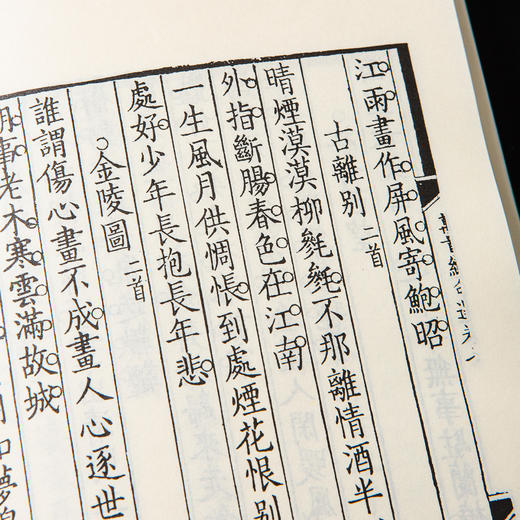 江雨畫作屏風寄鮑昭
古離別 二首
晴煙漠漠柳毿毿不那離情酒半
外指斷腸春色在江南
一生風月供惆悵到處煙花恨別
處好少年長抱長年悲
金陵圖 二首
誰謂傷心畫不成畫人心逐世
老木寒雲滿故城